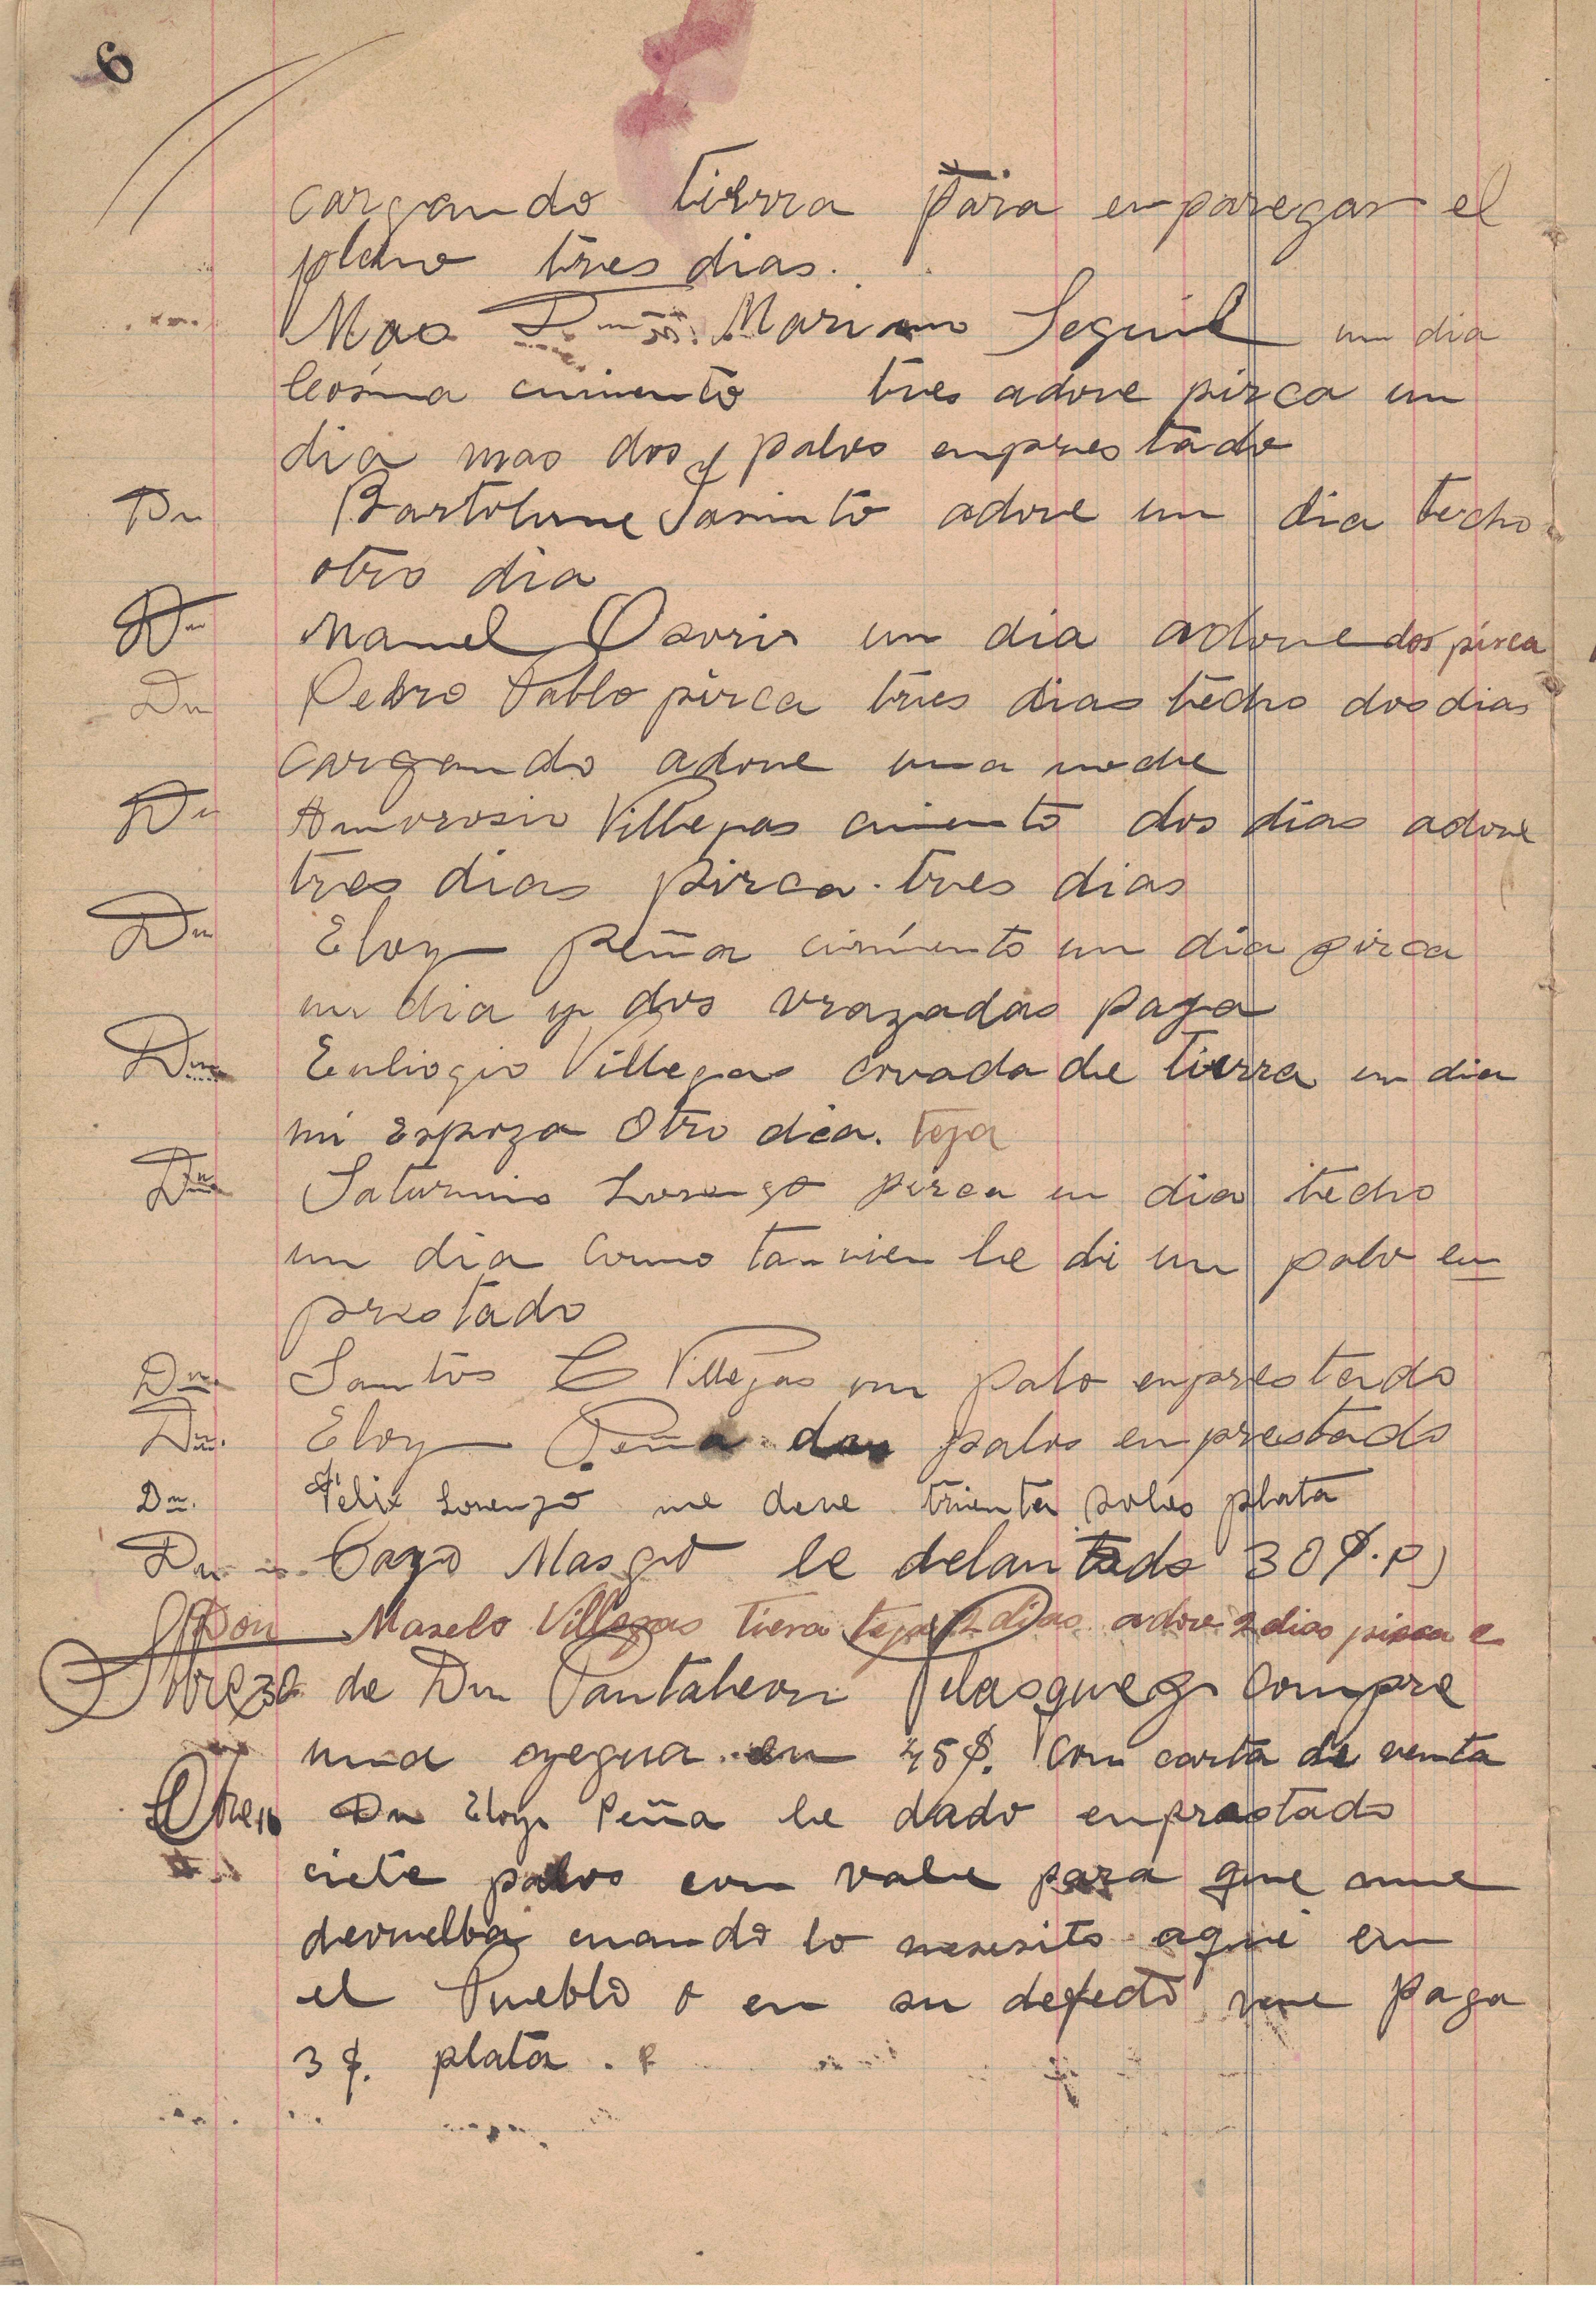 6
cargando tierra para enparegar el
plano tres dias.
Mas Dn. Mariano Seguil un dia
cimiento tres adove pirca un
dia mas dos palos enprestado
Dn Bartolume Jasinto adove un dia techo
otro dia
Dn Manuel Osorio un dia adove dos pirca
Dn Pedro Pablo pirca tres dias techo dos dias
cargando adove una noche
Dn Amvrosio Villegas cimiento dos dias adove
tres dias pirca tres dias
Dn Eloy Peña cimiento un dia pirca
un dia y dos vrazadas paga
Dn Euliogio Villegas covada de tierra un dia
mi Espoza Otro dia. teja
Dn Saturnino Lorenzo pirca un dia techo
un dia Como tanvien le di un palo en
prestado
Dn. Santos C Villegas un palo enprestado
Dn. Eloy Peña dos palos enprestado
Dn. Felix Lorenzo me deve trienta soles plata
Dn Masgo le delantado 30 $. P)
Don Maselo Villegas tiera teja 2 dias adove 2 dias pirca
de Dn Pantaleon Velasquez Compre
una yegua en 45$. Con carta de venta
Dn Eloy Peña le dado enprestado
ciete palos con vale para que me
devuelba cuando lo nesesito aqui en
el Pueblo o en su defecto me paga
3 $. plata.